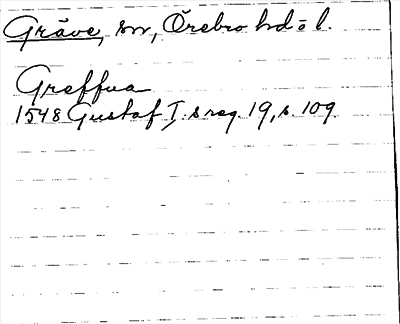 Gräve, sn, Örebro hd o l.
Greffua
1548 Gustaf I:s reg. 19, s. 109.